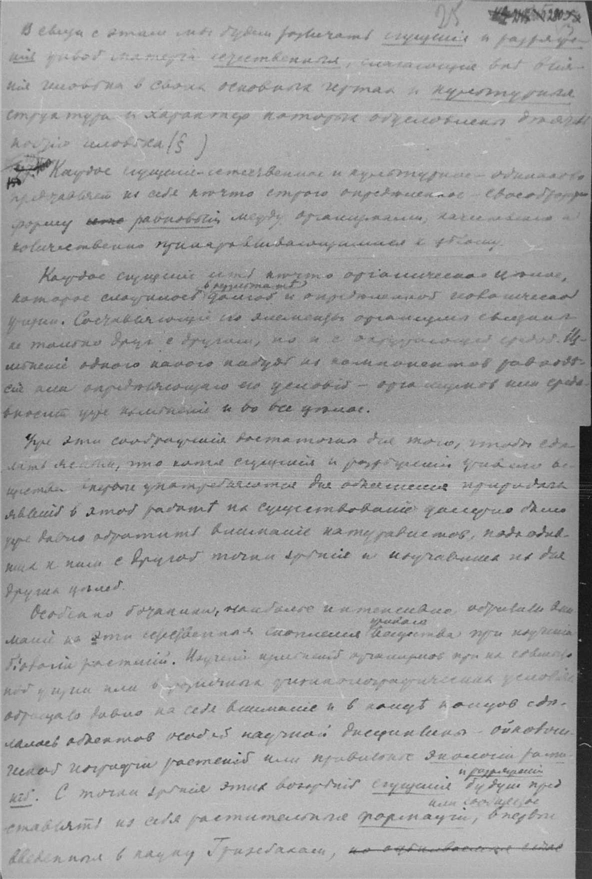 25
В связи с этим мы будем различать сгущения и разряже-
ния живой материи естественныя, слагающияся вне влия-
ния человека в своих основных чертах и культурныя
структура и характер которых обусловлены деятель
ностью человека (§ )
Каждое сгущение – естественное и культурное – одинаково
представляет из себя нечто строго определенное – своеобразную
форму равновесия между организмами, качественно и
количественно приноравливающимися к целому.
Каждое сгущение есть нечто органическое целое,
которое сложилось в результате долгой и определенной геологической
истории. Составляющие его элементы организмы связаны
не только друг с другом, но и с окружающей средой. Из-
менение одного какого нибудь из компонентов равновес
сия или определяющаго его условия – организмов или среды
вносит уже изменение и во все целое.
Уже эти соображения достаточны для того, чтобы сде-
лать ясным, что хотя сгущения и разрежения живого ве-
щества впервые употребляются для объяснения природных
явлений в этой работе на существование должно было
уже давно обратить внимание натуралистов, подходив-
ших к ним с другой точки зрения и изучавших их для
других целей.
Особенно ботаники, наиболее интенсивно обращали вни
мание на эти естественныя скопления живого вещества при изучении
биологии растений. Изучение организмов при их совмест
ной жизни или в различных физикогеографических условиях
обращало давно на себя внимание и в конце концов сде-
лалось объектом особой научной дисциплины – ойкологи-
ческой географии растений или правильнее экологии расте
ний. С точки зрения этих воззрений сгущения и разрежения будут пред
ставлять из себя растительныя формации, или сообщества впервые
введенныя в науку Гризебахом,